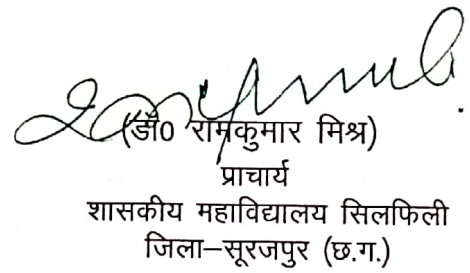 (डॉ0 रामकुमार मिश्र)
प्राचार्य
शासकीय महाविद्यालय सिलफिली
जिला–सूरजपुर (छ.ग.)